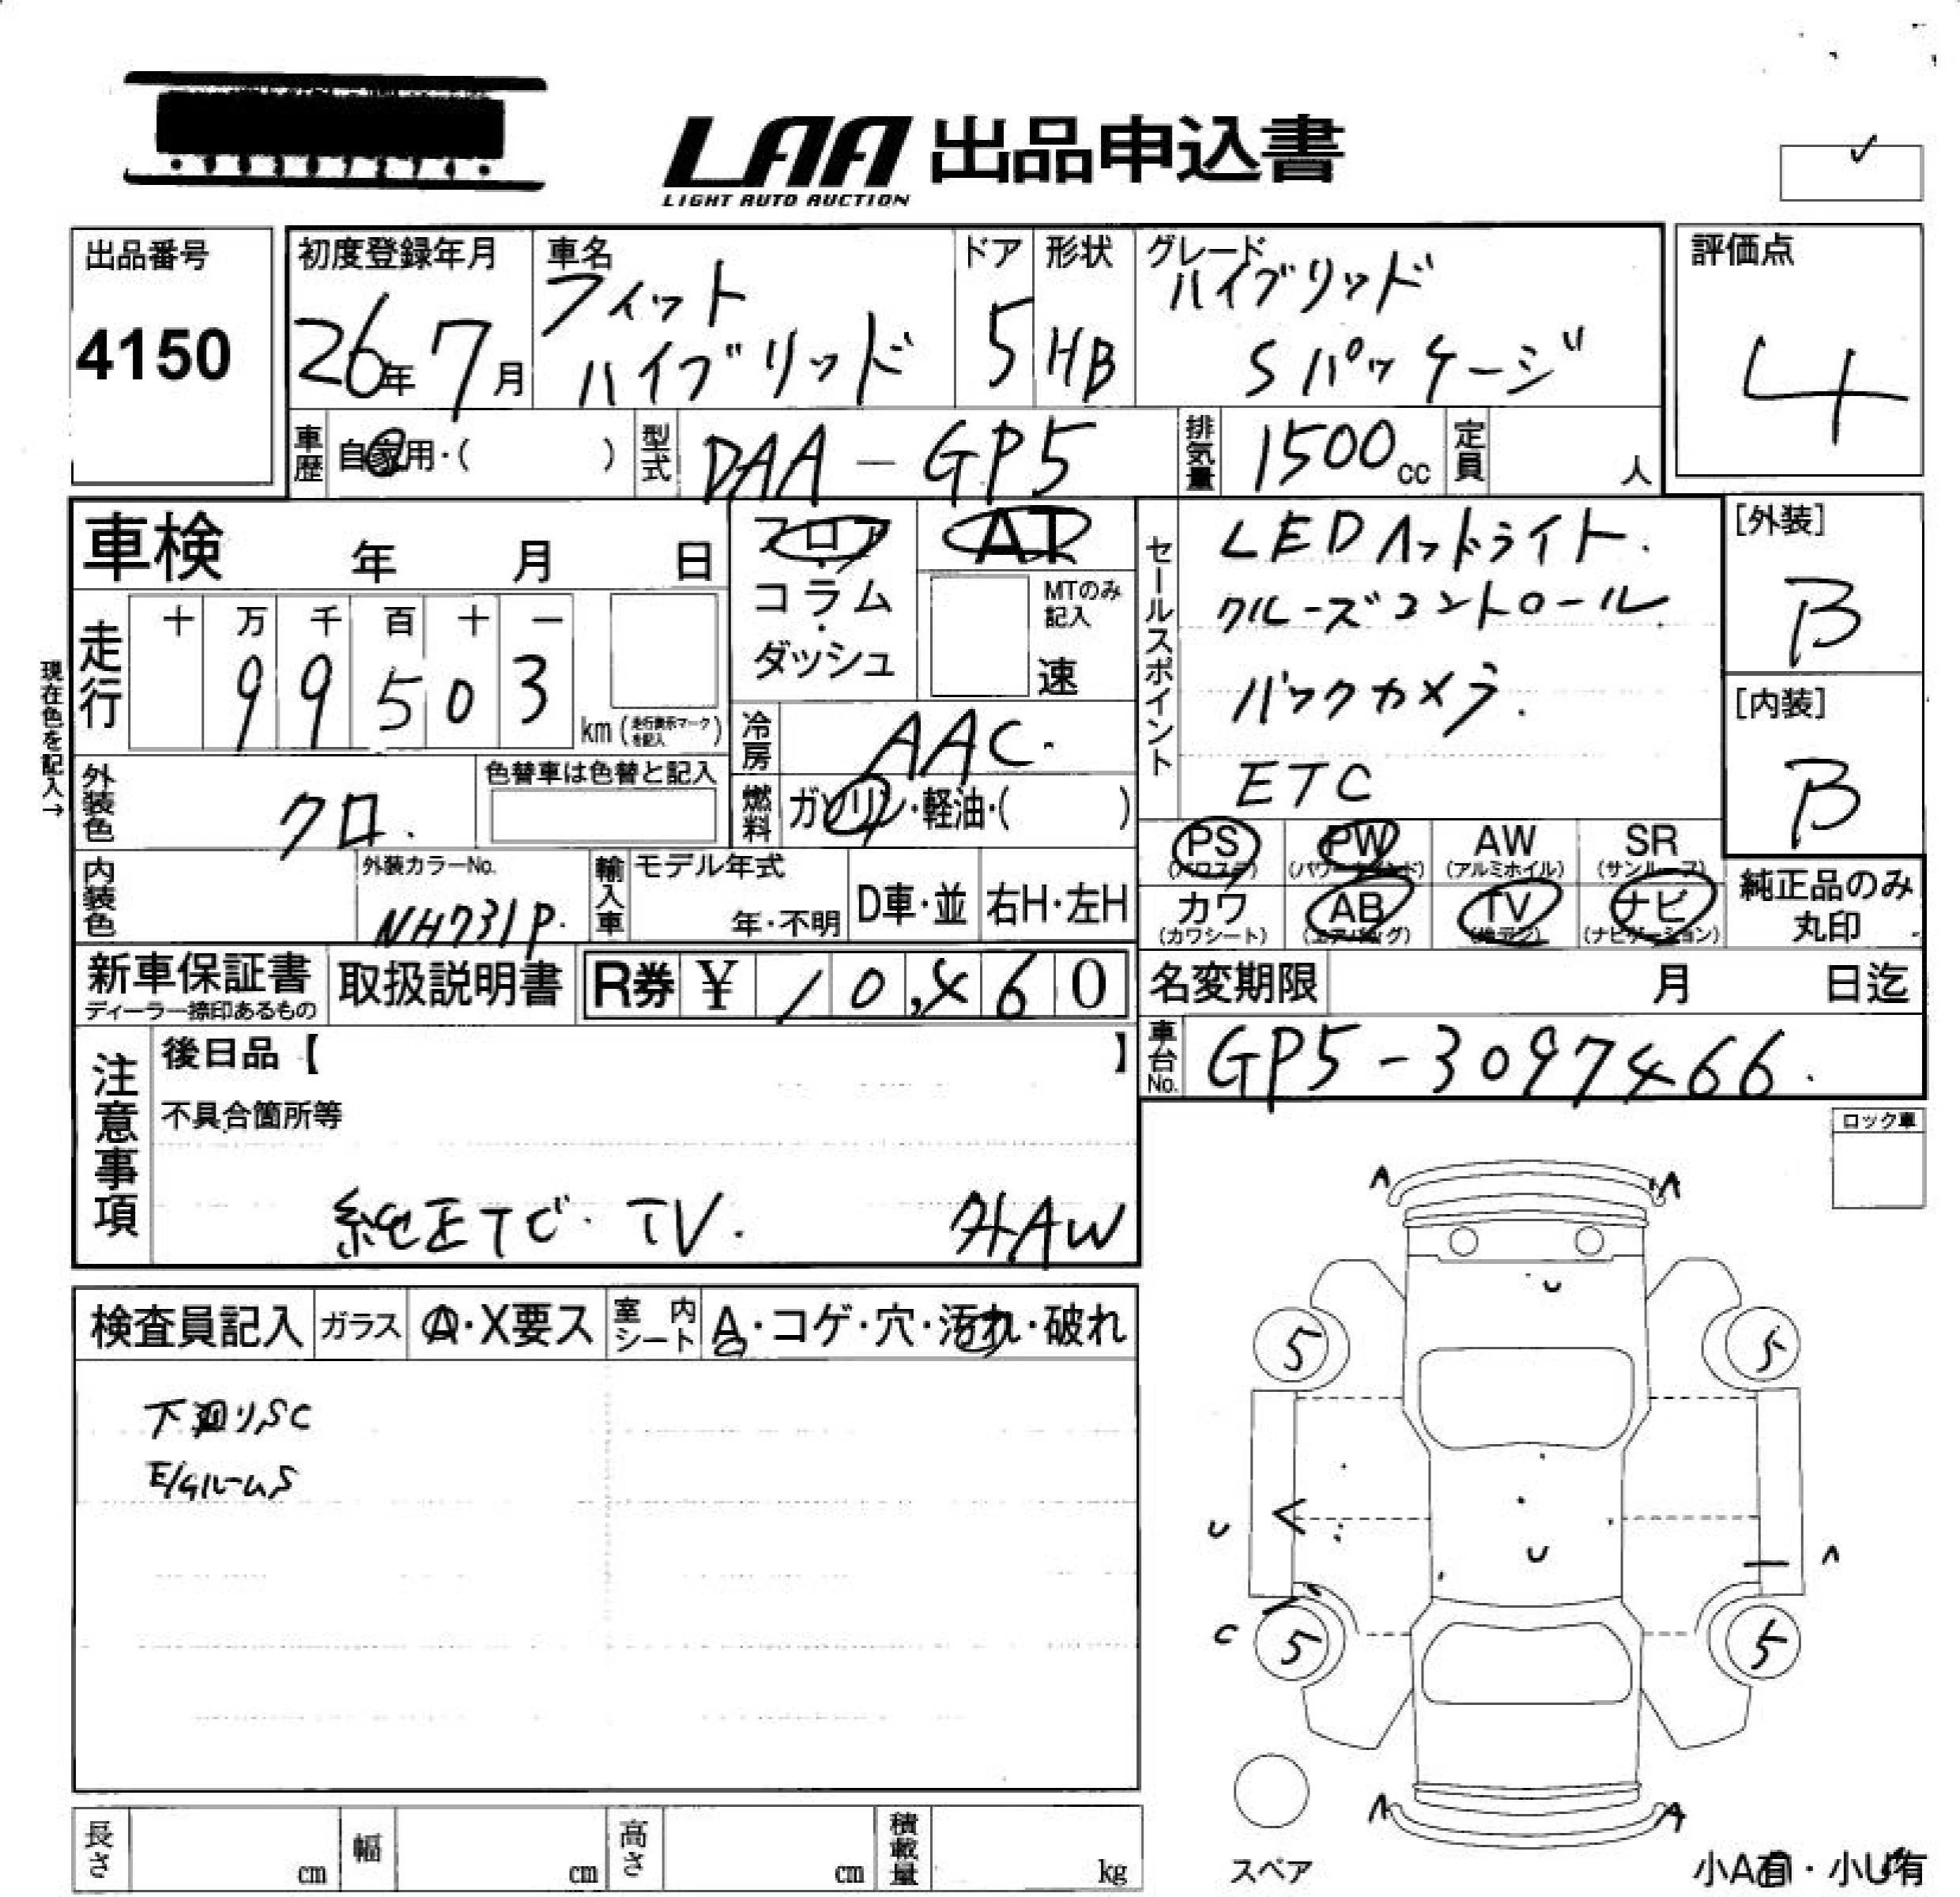 LAA 出品申込書
LIGHT AUTO AUCTION
出品番号
4150
初度登録年月
26年 7月
車名
フィット
ハイブリッド
ドア
5
形状
HB
グレード
ハイブリッド
Sパッケージ
評価点
4
車歴
自家用・( )
型式
DAA-GP5
排気量
1500cc
定員
人
車検 年 月 日
フロア
・
コラム
・
ダッシュ
AT
MTのみ
記入
速
セールスポイント
LEDヘッドライト.
クルーズコントロール
バックカメラ.
ETC
[外装]
B
[内装]
B
現在色を記入→
走行
十 万 千 百 十 一
9 9 5 0 3
km (走行表示マークを記入)
冷房
AAC.
燃料
ガソリン・軽油・( )
外装色
クロ.
色替車は色替と記入
内装色
外装カラーNo.
NH731P.
輸入車
モデル年式
年・不明
D車・並
右H・左H
PS
(パワステ)
PW
(パワーウインド)
AW
(アルミホイル)
SR
(サンルーフ)
カワ
(カワシート)
AB
(エアバッグ)
TV
(地デジ)
ナビ
(ナビゲーション)
純正品のみ
丸印
新車保証書
ディーラー捺印あるもの
取扱説明書
R券 ¥ 10,460
名変期限 月 日迄
車台No.
GP5-3097466.
注意事項
後日品【 】
不具合箇所等
純正ナビ・TV. 外AW
ロック車
検査員記入
ガラス
A・X要ス
室内シート
A・コゲ・穴・汚れ・破れ
下廻りSC
E/GルームS
A A
U
5 5
U
U
A
C
5 5
A A
スペア
小A有・小U有
長さ cm
幅 cm
高さ cm
積載量 kg